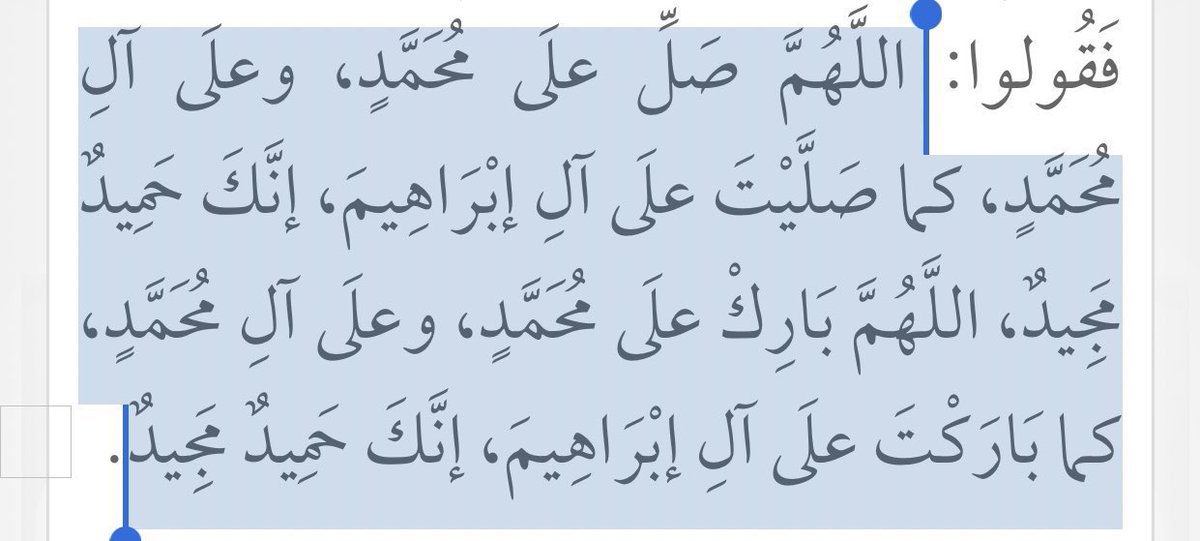 فَقُولوا: اللَّهُمَّ صَلِّ علَى مُحَمَّدٍ، وعلَى آلِ
مُحَمَّدٍ، كما صَلَّيْتَ علَى آلِ إبْرَاهِيمَ، إنَّكَ حَمِيدٌ
مَجِيدٌ، اللَّهُمَّ بَارِكْ علَى مُحَمَّدٍ، وعلَى آلِ مُحَمَّدٍ،
كما بَارَكْتَ علَى آلِ إبْرَاهِيمَ، إنَّكَ حَمِيدٌ مَجِيدٌ.